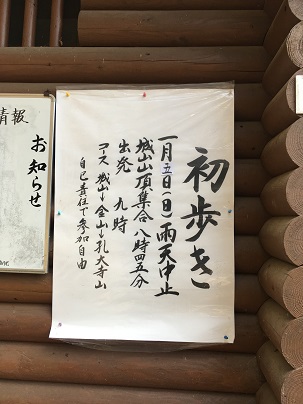 初歩き
一月五日(日)雨天中止
城山山頂集合 八時四五分
出発 九時
コース 城山→金山→孔大寺山
自己責任で参加自由
情報
お知らせ